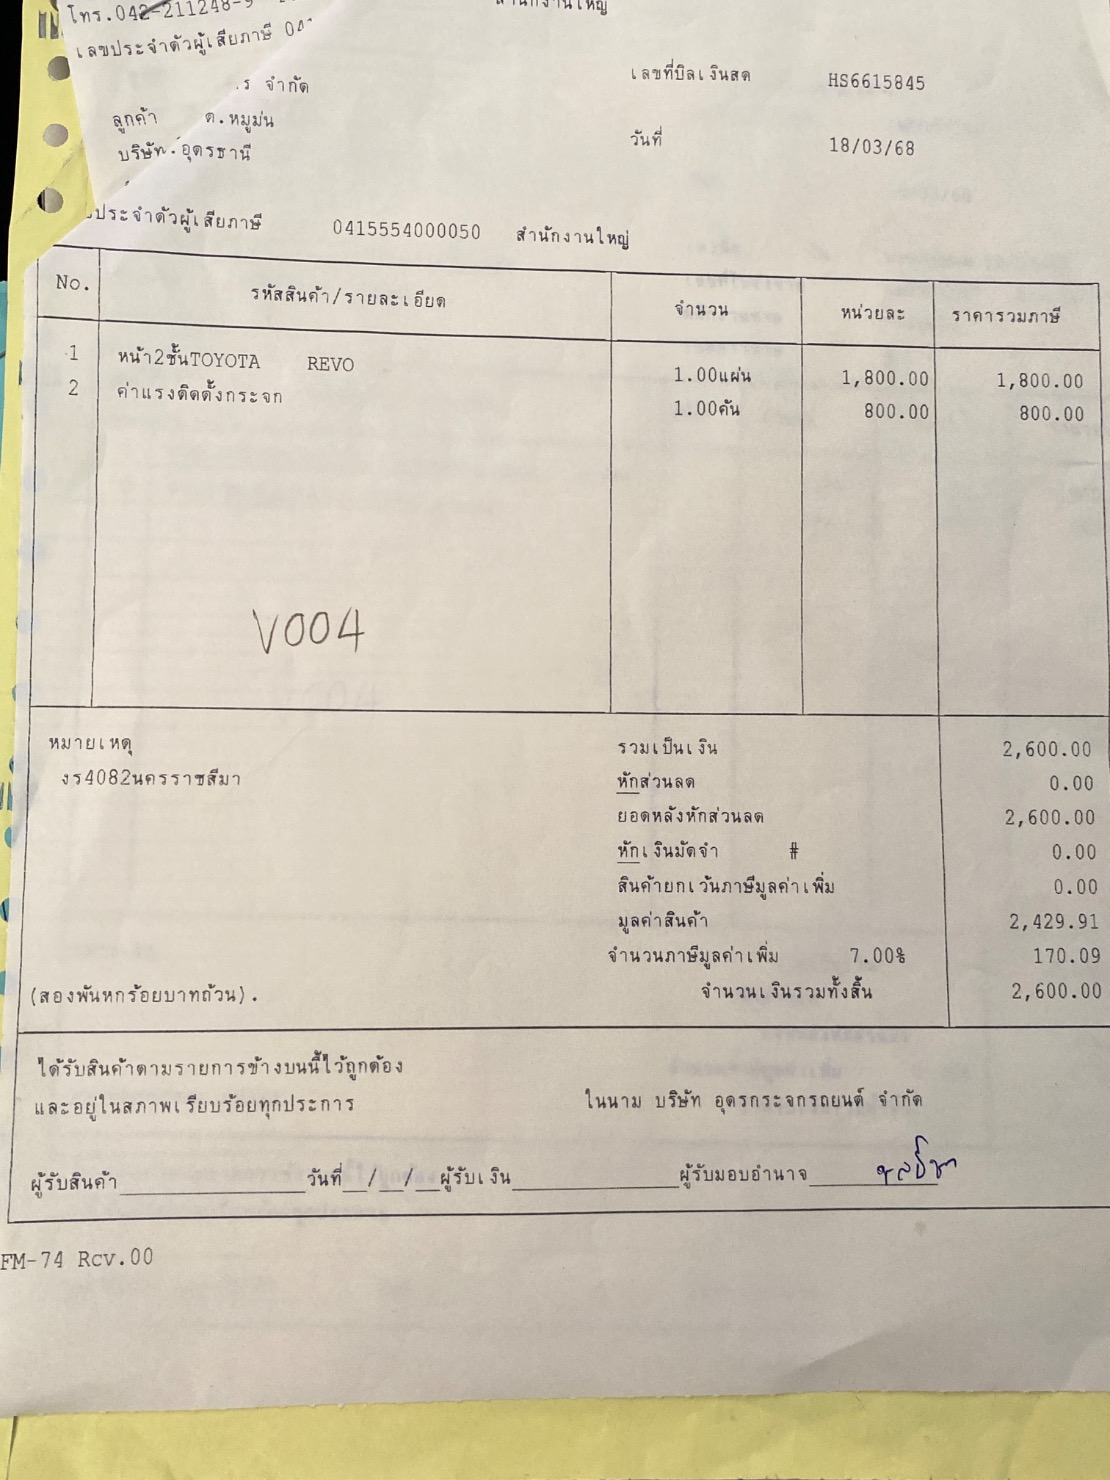 โทร.042-211248-9
สำนักงานใหญ่
เลขประจำตัวผู้เสียภาษี 04
ร จำกัด
เลขที่บิลเงินสด HS6615845
ลูกค้า ต.หมูม่น
วันที่ 18/03/68
บริษัท อุดรธานี
ประจำตัวผู้เสียภาษี 0415554000050 สำนักงานใหญ่
No. รหัสสินค้า/รายละเอียด จำนวน หน่วยละ ราคารวมภาษี
1 หน้า2ชั้นTOYOTA REVO 1.00แผ่น 1,800.00 1,800.00
2 ค่าแรงติดตั้งกระจก 1.00คัน 800.00 800.00
V004
หมายเหตุ รวมเป็นเงิน 2,600.00
งร4082นครราชสีมา หักส่วนลด 0.00
ยอดหลังหักส่วนลด 2,600.00
หักเงินมัดจำ # 0.00
สินค้ายกเว้นภาษีมูลค่าเพิ่ม 0.00
มูลค่าสินค้า 2,429.91
จำนวนภาษีมูลค่าเพิ่ม 7.00% 170.09
(สองพันหกร้อยบาทถ้วน). จำนวนเงินรวมทั้งสิ้น 2,600.00
ได้รับสินค้าตามรายการข้างบนนี้ไว้ถูกต้อง
และอยู่ในสภาพเรียบร้อยทุกประการ ในนาม บริษัท อุดรกระจกรถยนต์ จำกัด
ผู้รับสินค้า วันที่__/__/__ผู้รับเงิน ผู้รับมอบอำนาจ
FM-74 Rev.00